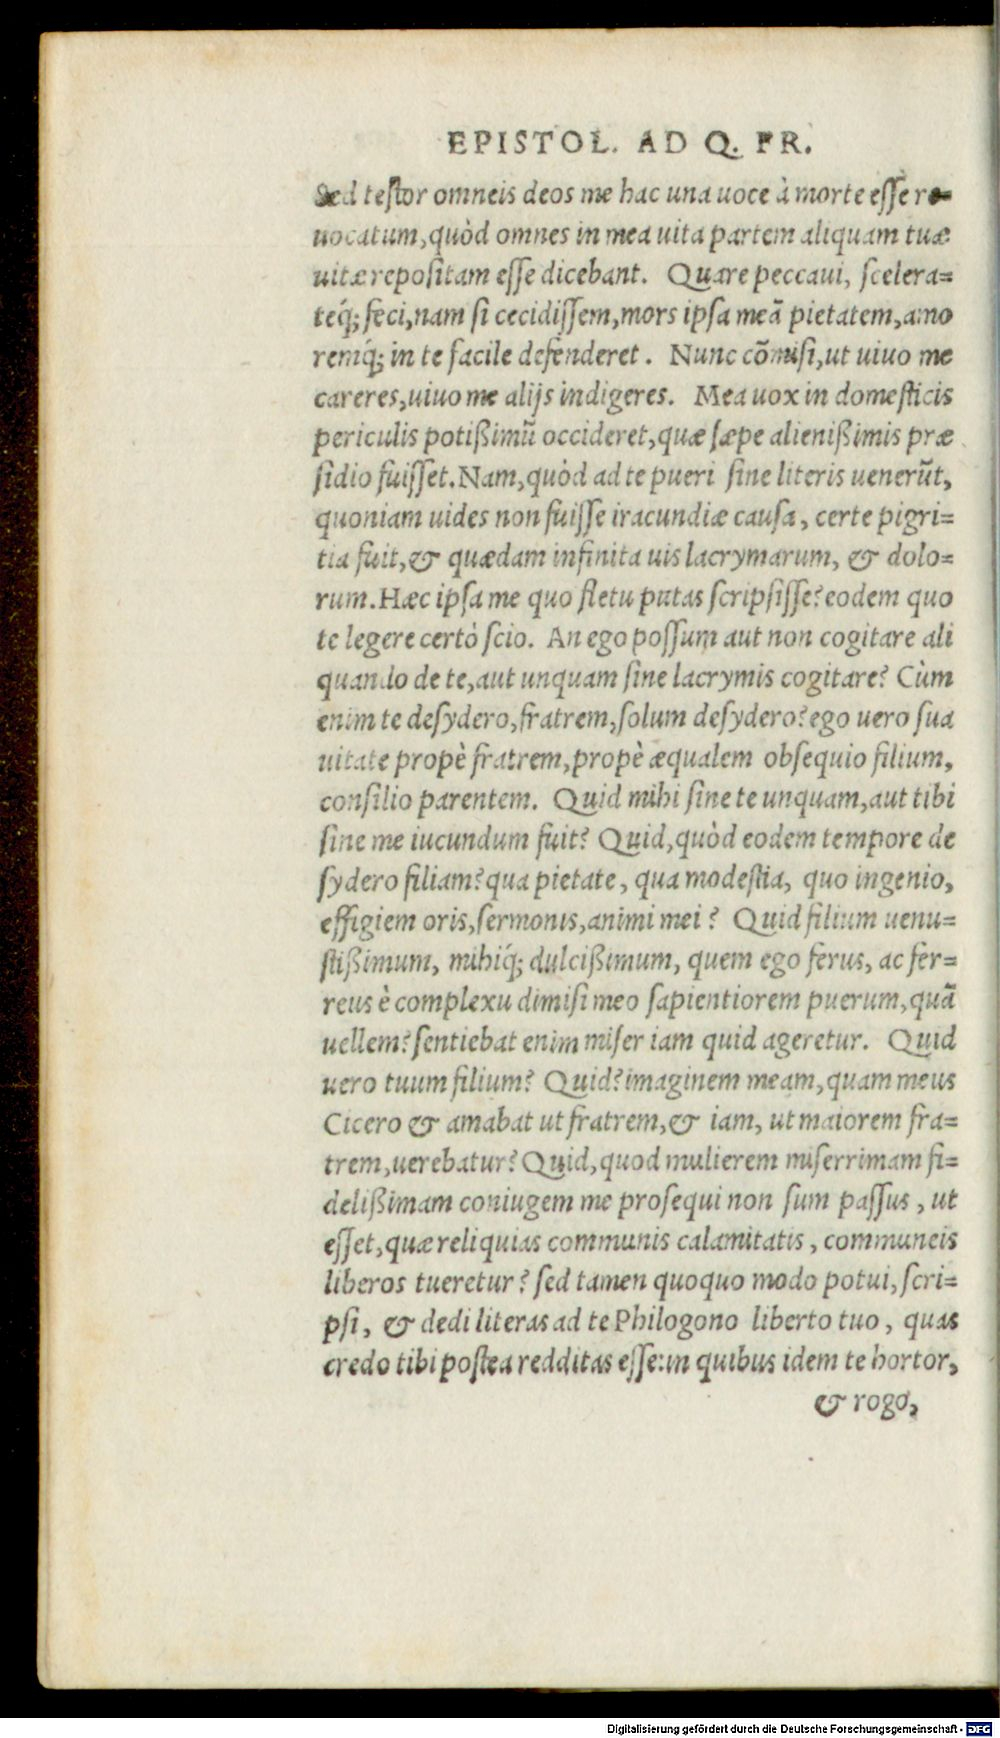 EPISTOL. AD Q. FR.
Sed testor omneis deos me hac una uoce à morte esse re-
uocatum, quòd omnes in mea uita partem aliquam tuæ
uitæ repositam esse dicebant. Quare peccaui, scelera=
teq́; feci, nam si cecidissem, mors ipsa meā pietatem, amo
remq́; in te facile defenderet. Nunc cōmisi, ut uiuo me
careres, uiuo me alijs indigeres. Mea uox in domesticis
periculis potißimū occideret, quæ sæpe alienißimis præ
sidio fuisset. Nam, quòd ad te pueri sine literis uenerūt,
quoniam uides non fuisse iracundiæ causa, certe pigri=
tia fuit, & quædam infinita uis lacrymarum, & dolo=
rum. Hæc ipsa me quo fletu putas scripsisse? eodem quo
te legere certò scio. An ego possum aut non cogitare ali
quando de te, aut unquam sine lacrymis cogitare? Cùm
enim te desydero, fratrem, solum desydero? ego uero sua
uitate propè fratrem, propè æqualem obsequio filium,
consilio parentem. Quid mihi sine te unquam, aut tibi
sine me iucundum fuit? Quid, quòd eodem tempore de
sydero filiam? qua pietate, qua modestia, quo ingenio,
effigiem oris, sermonis, animi mei? Quid filium uenu=
stißimum, mihiq́; dulcißimum, quem ego ferus, ac fer=
reus è complexu dimisi meo sapientiorem puerum, quā
uellem? sentiebat enim miser iam quid ageretur. Quid
uero tuum filium? Quid? imaginem meam, quam meus
Cicero & amabat ut fratrem, & iam, ut maiorem fra=
trem, uerebatur? Quid, quod mulierem miserrimam fi=
delißimam coniugem me prosequi non sum passus, ut
esset, quæ reliquias communis calamitatis, communeis
liberos tueretur? sed tamen quoquo modo potui, scri=
psi, & dedi literas ad te Philogono liberto tuo, quas
credo tibi postea redditas esse: in quibus idem te hortor,
& rogo,
Digitalisierung gefördert durch die Deutsche Forschungsgemeinschaft - DFG